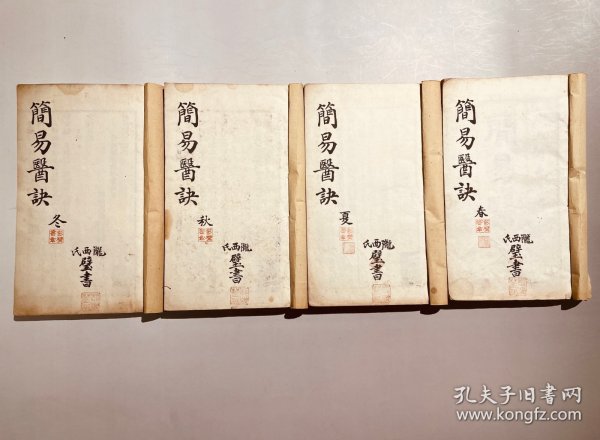 簡易醫訣
春
隴西氏
璧書
簡易醫訣
夏
隴西氏
璧書
簡易醫訣
秋
隴西氏
璧書
簡易醫訣
冬
隴西氏
璧書
孔夫子旧书网
www.kongfz.com